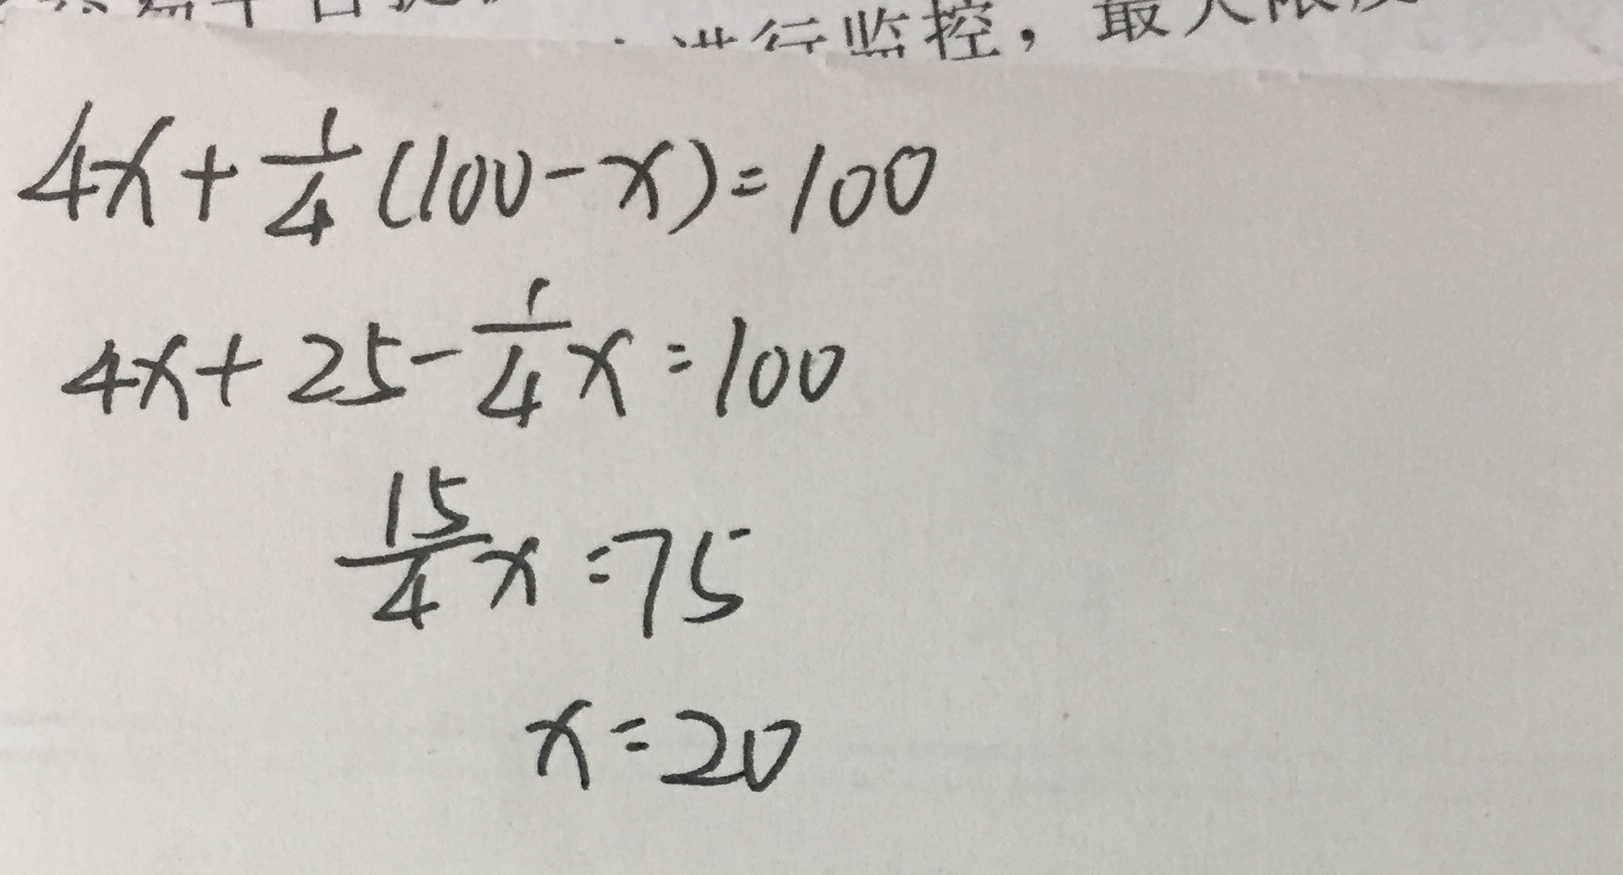 进行监控，最大限度
4x+\frac{1}{4}(100-x)=100
4x+25-\frac{1}{4}x=100
\frac{15}{4}x=75
x=20